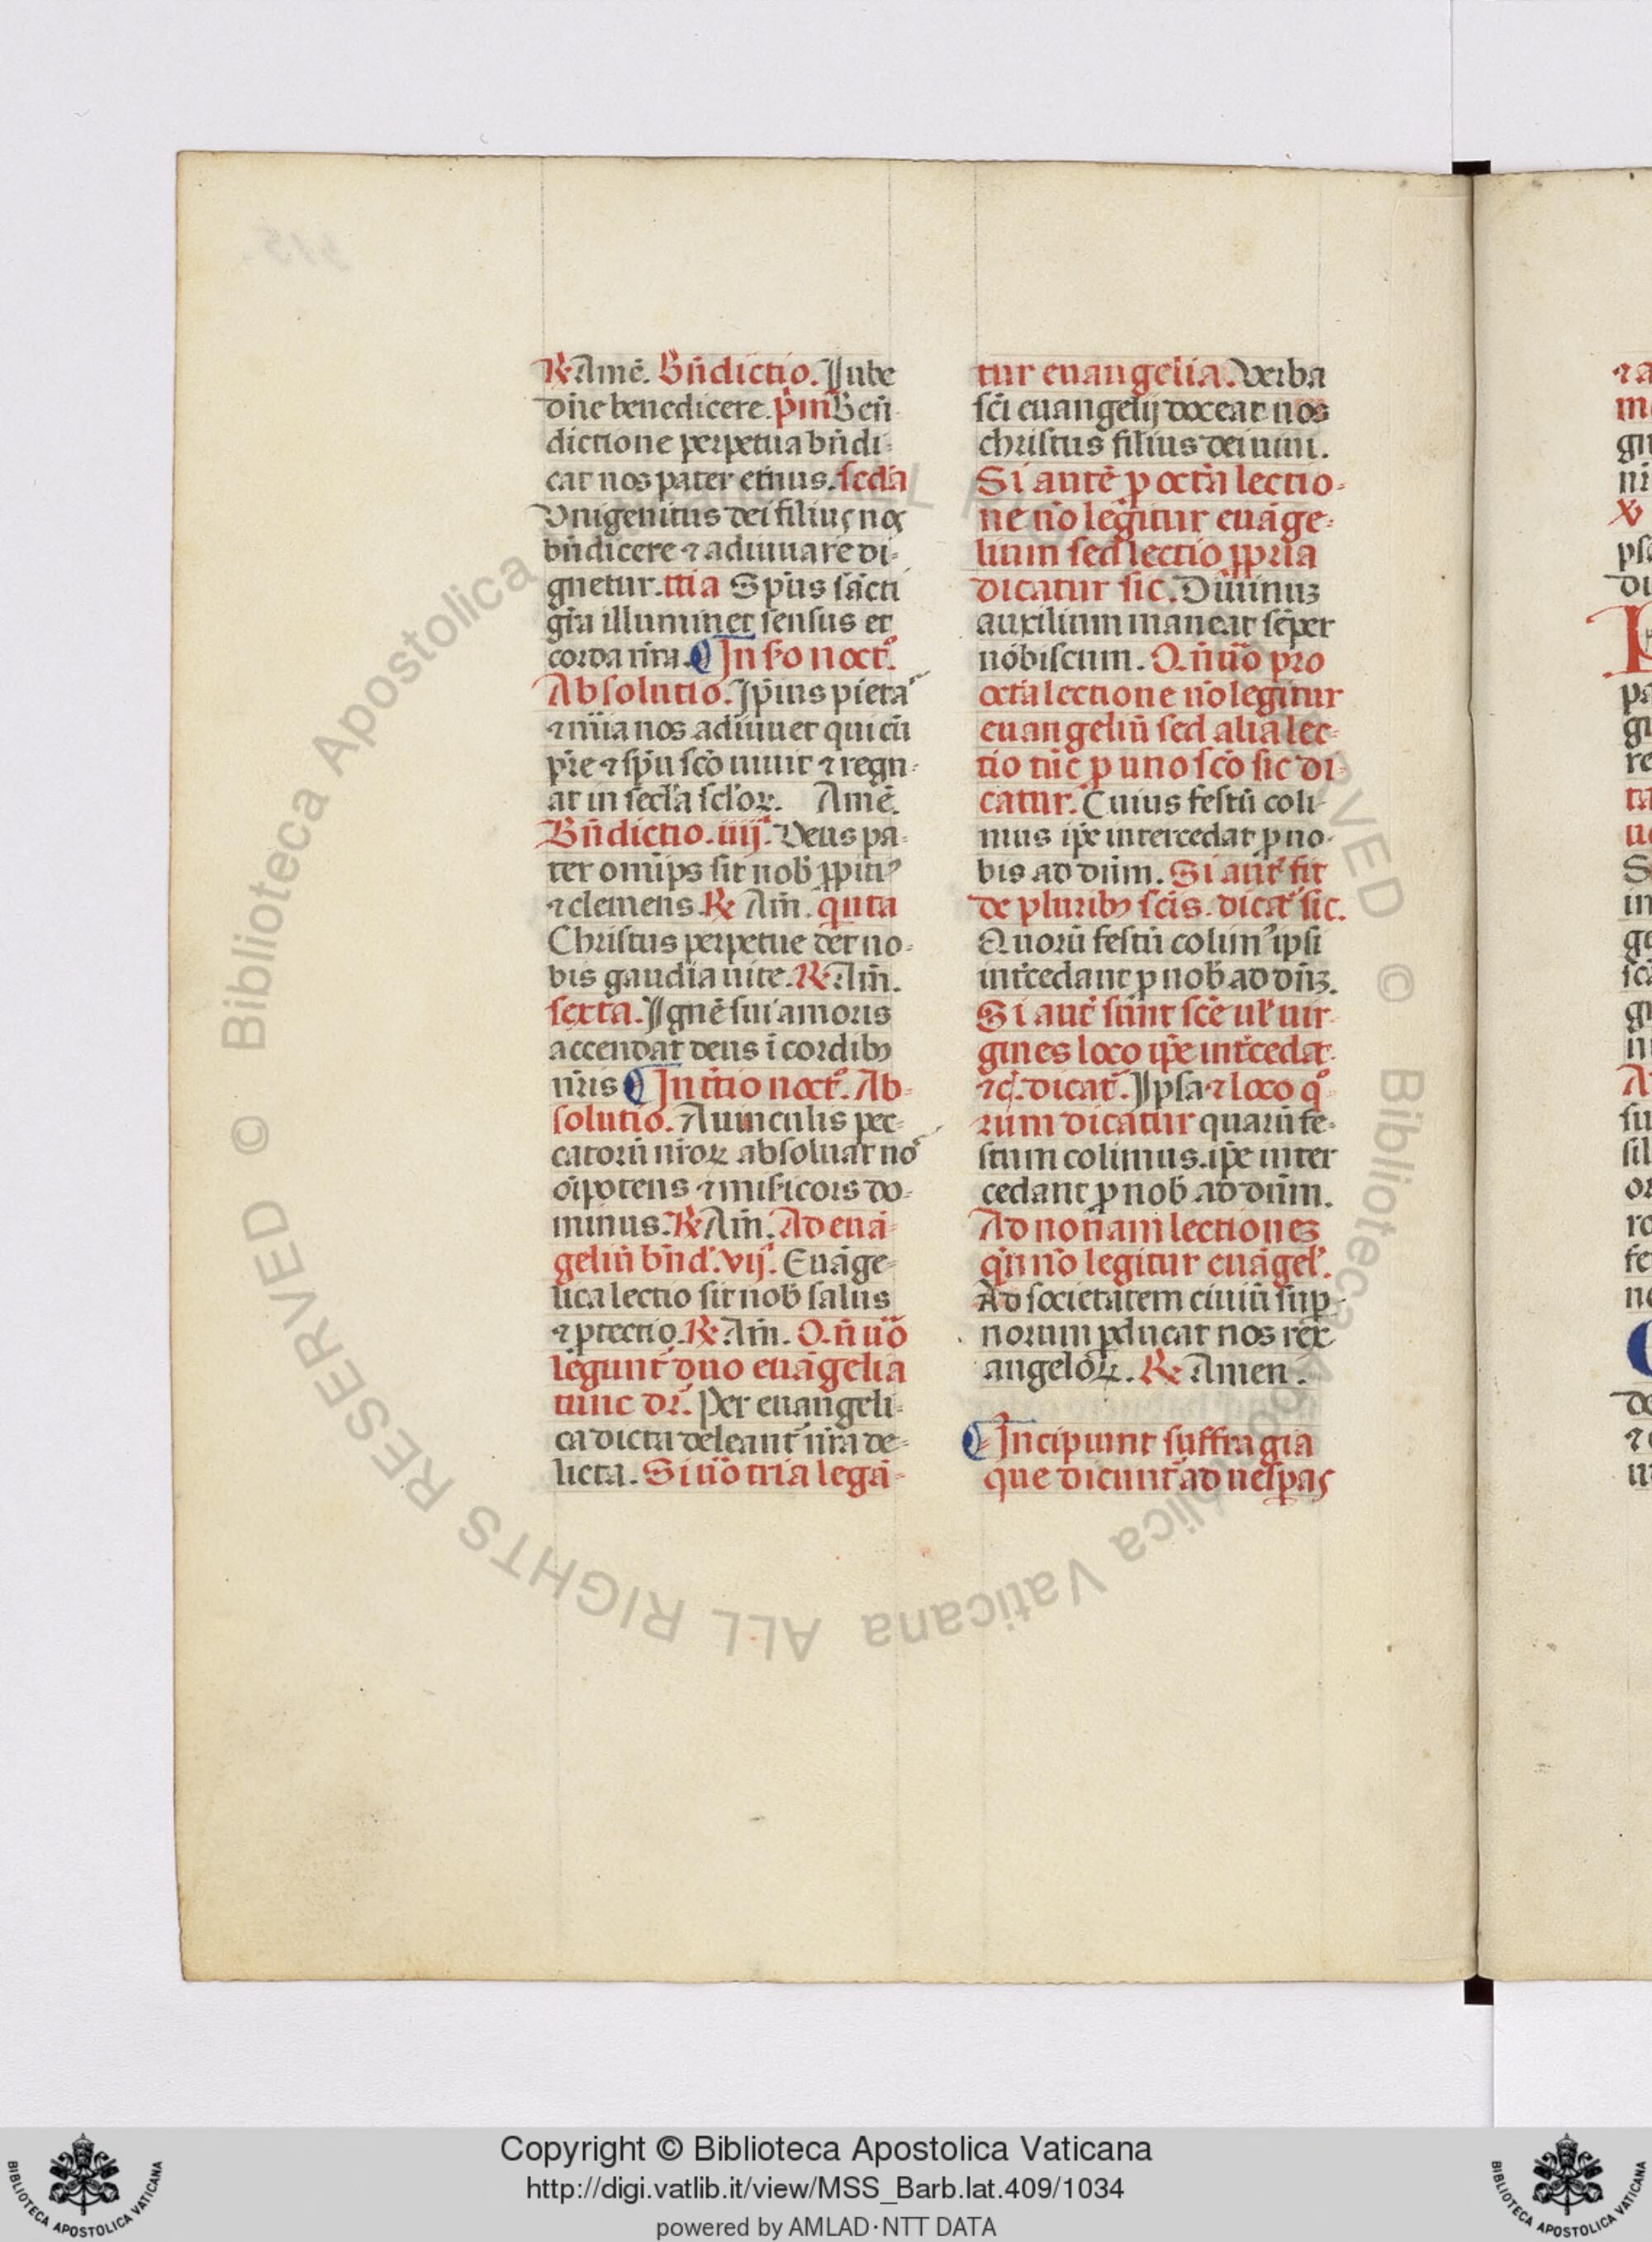 ℟ Amē. Bn̄dictio. Iube
dn̄e benedicere. p̄m Ben̄
dictione perpetua bn̄di-
cat nos pater et̄nus. sc̄da
Unigenitus dei filius nos
bn̄dicere ⁊ adiuuare di-
gnetur. t̄tia Sp̄us sācti
gr̄a illuminet sensus et
corda nr̄a. ¶ In s̄o noct̄.
Absolutio. Ip̄ius pieta
⁊ mīa nos adiuuet qui cū
p̄re ⁊ sp̄u sc̄o uiuit ⁊ regn-
at in secl̄a scl̄oꝝ. Amē.
Bn̄dictio. iiijᵃ. Deus pa-
ter om̄ips sit nob̄ ꝓpitiꝰ
⁊ clemens. ℟ Am̄. quīta
Christus perpetue det no-
bis gaudia uite. ℟ Am̄.
sexta. Ignē sui amoris
accendat deus ī cordibꝫ
nr̄is ¶ In t̄tio noct̄. Ab-
solutio. A uinculis pec-
catorū nr̄oꝝ absoluat no
oīpotens ⁊ miscors do-
minus. ℟ Am̄. Ad euā-
geliū bn̄d. vijᵃ. Euāge-
lica lectio sit nob̄ salus
⁊ ꝓtectio. ℟ Am̄. Q.n̄ uo
legunt̄ duo euāgelia
tunc dr̄. Per euangeli-
ca dicta deleant̄ nr̄a de-
licta. Si uō tria legā-
tur euangelia. Verba
sc̄i euangelij doceat nos
christus filius dei uiui.
Si autē ꝓ octa lectio-
ne nō legitur euāge-
lium sed lectio ꝓpria
dicatur sic. Diuinuꝫ
auxilium maneat sēper
nobiscum. Q.n̄ uo pro
octa lectione nō legitur
euangeliū sed alia lec-
tio tūc ꝓ uno sc̄o sic di-
catur. Cuius festū coli-
mus ip̄e intercedat ꝓ no-
bis ad dn̄m. Si aut̄ fit
de pluribꝫ sc̄is. dicat̄ sic.
Quorū festū colimꝰ ipsi
int̄cedant ꝓ nob̄ ad dn̄ꝫ.
Si aut̄ sunt sc̄e ul̄ uir-
gines loco ip̄e int̄cedat
⁊c̄. dicat̄. Ipsa ⁊ loco q°
rum dicatur quarū fe-
stum colimus. ip̄e inter
cedant ꝓ nob̄ ad dn̄m.
Ad nonam lectioneꝫ
qn̄ nō legitur euāgel̄.
Ad societatem ciuiū suꝑ-
norum ꝑducat nos rex
angeloꝝ. ℟ Amen.
¶ Incipiunt suffragia
que dicunt̄ ad uesꝑas
© Biblioteca Apostolica Vaticana ALL RIGHTS RESERVED © Biblioteca Apostolica Vaticana ALL RIGHTS RESERVED
Copyright © Biblioteca Apostolica Vaticana
http://digi.vatlib.it/view/MSS_Barb.lat.409/1034
powered by AMLAD·NTT DATA
BIBLIOTECA APOSTOLICA VATICANA
BIBLIOTECA APOSTOLICA VATICANA